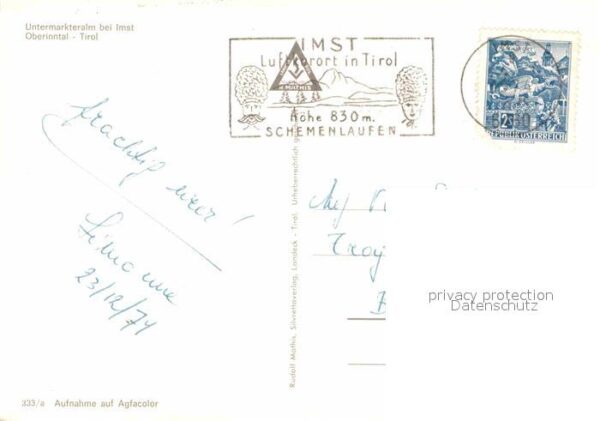 Untermarkteralm bei Imst
Oberinntal - Tirol
IMST
Luftkurort in Tirol
R. MATHIS
Höhe 830 m.
SCHEMENLAUFEN
REPUBLIK ÖSTERREICH
prachtig weer!
Simonne
23/12/74
Rudolf Mathis, Silvrettaverlag, Landeck - Tirol. Urheberrechtlich
privacy protection
Datenschutz
333/a Aufnahme auf Agfacolor